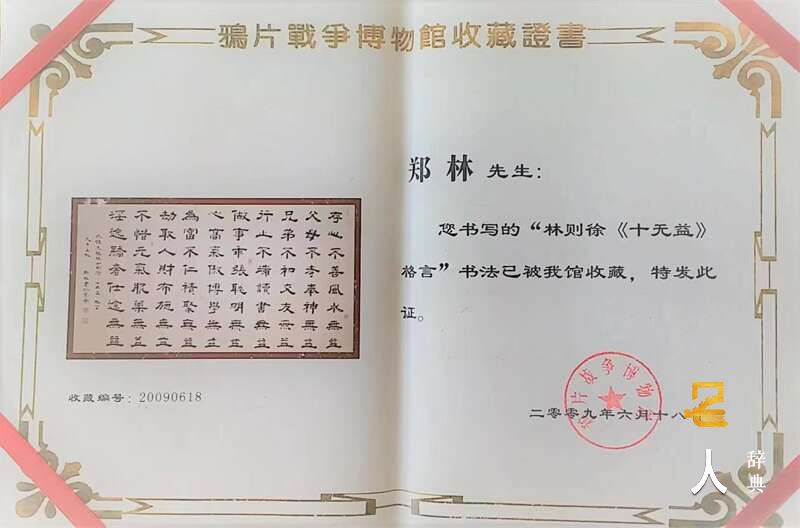 鴉片戰爭博物館收藏證書
存心不善風水無益
父母不孝奉神無益
兄弟不和交友無益
行止不端讀書無益
做事乖張聰明無益
心高氣傲博學無益
為富不仁積聚無益
劫取人財布施無益
不惜元氣服藥無益
淫逸驕奢仕途無益
收藏编号：20090618
郑林 先生：
您书写的“林则徐《十无益》
格言”书法已被我馆收藏，特发此
证。
鸦片战争博物
二零零九年六月十八
人
辞典